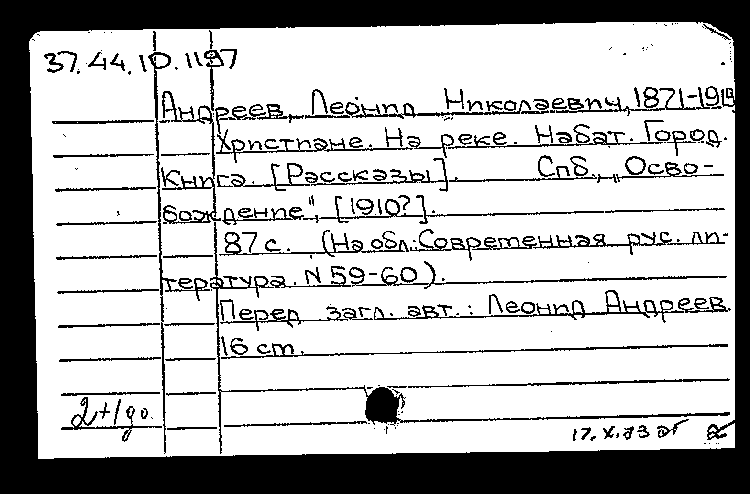 37.44.10.1197
Андреев, Леонид Николаевич, 1871-1919
Христиане. На реке. Набат. Город.
Книга. [Рассказы]. Спб., „Осво-
бождение", [1910?].
87 с. (На обл.: Современная рус. ли-
тература. N 59-60).
Перед загл. авт.: Леонид Андреев.
16 см.
2+1 до.
17.X.73